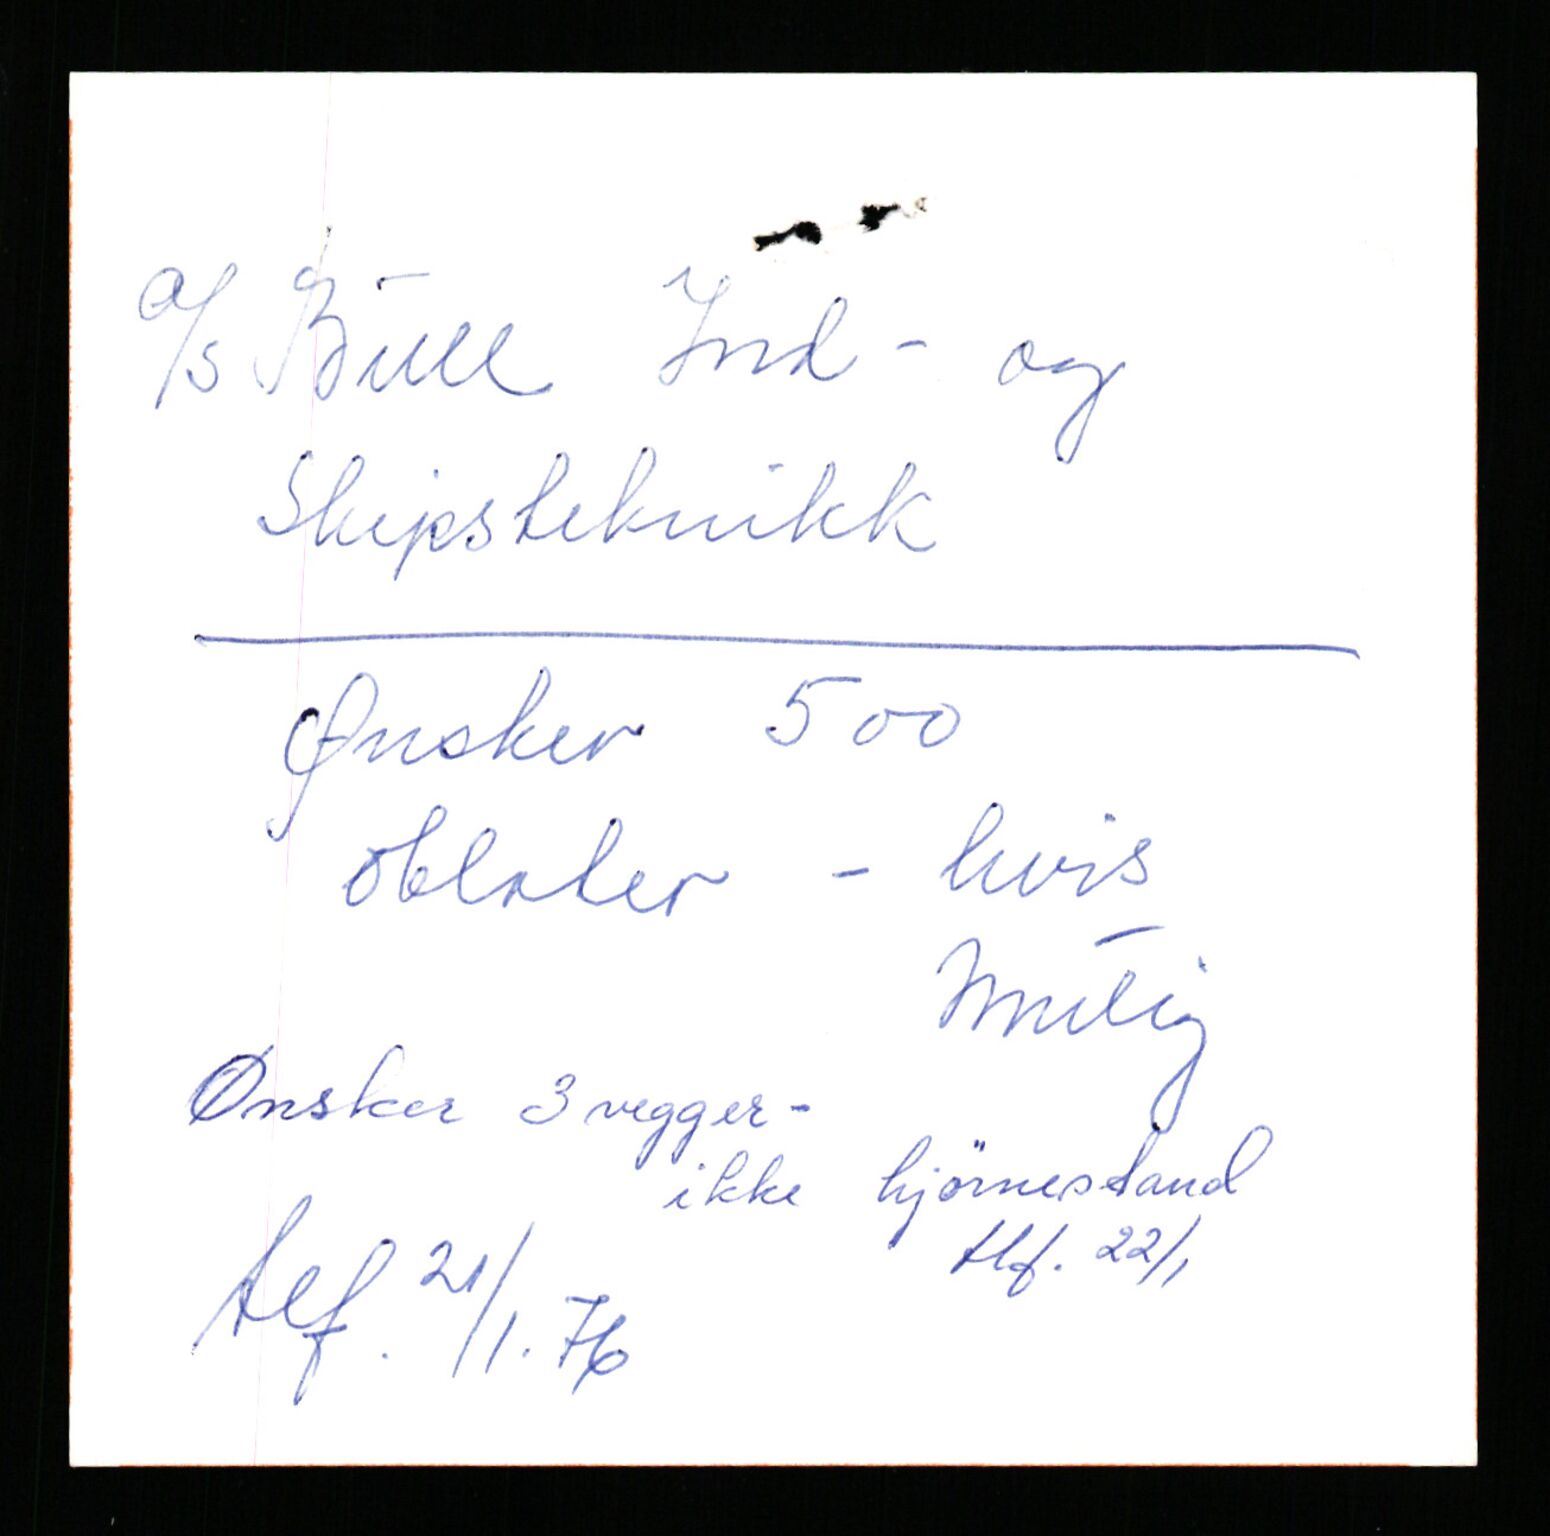 a/s Bull Ind- og
Skipsteknikk
Ønsker 500
oblater - hvis
mulig
Ønsker 3 vegger-
ikke hjörnestand
tlf. 22/1
tlf. 21/1.76